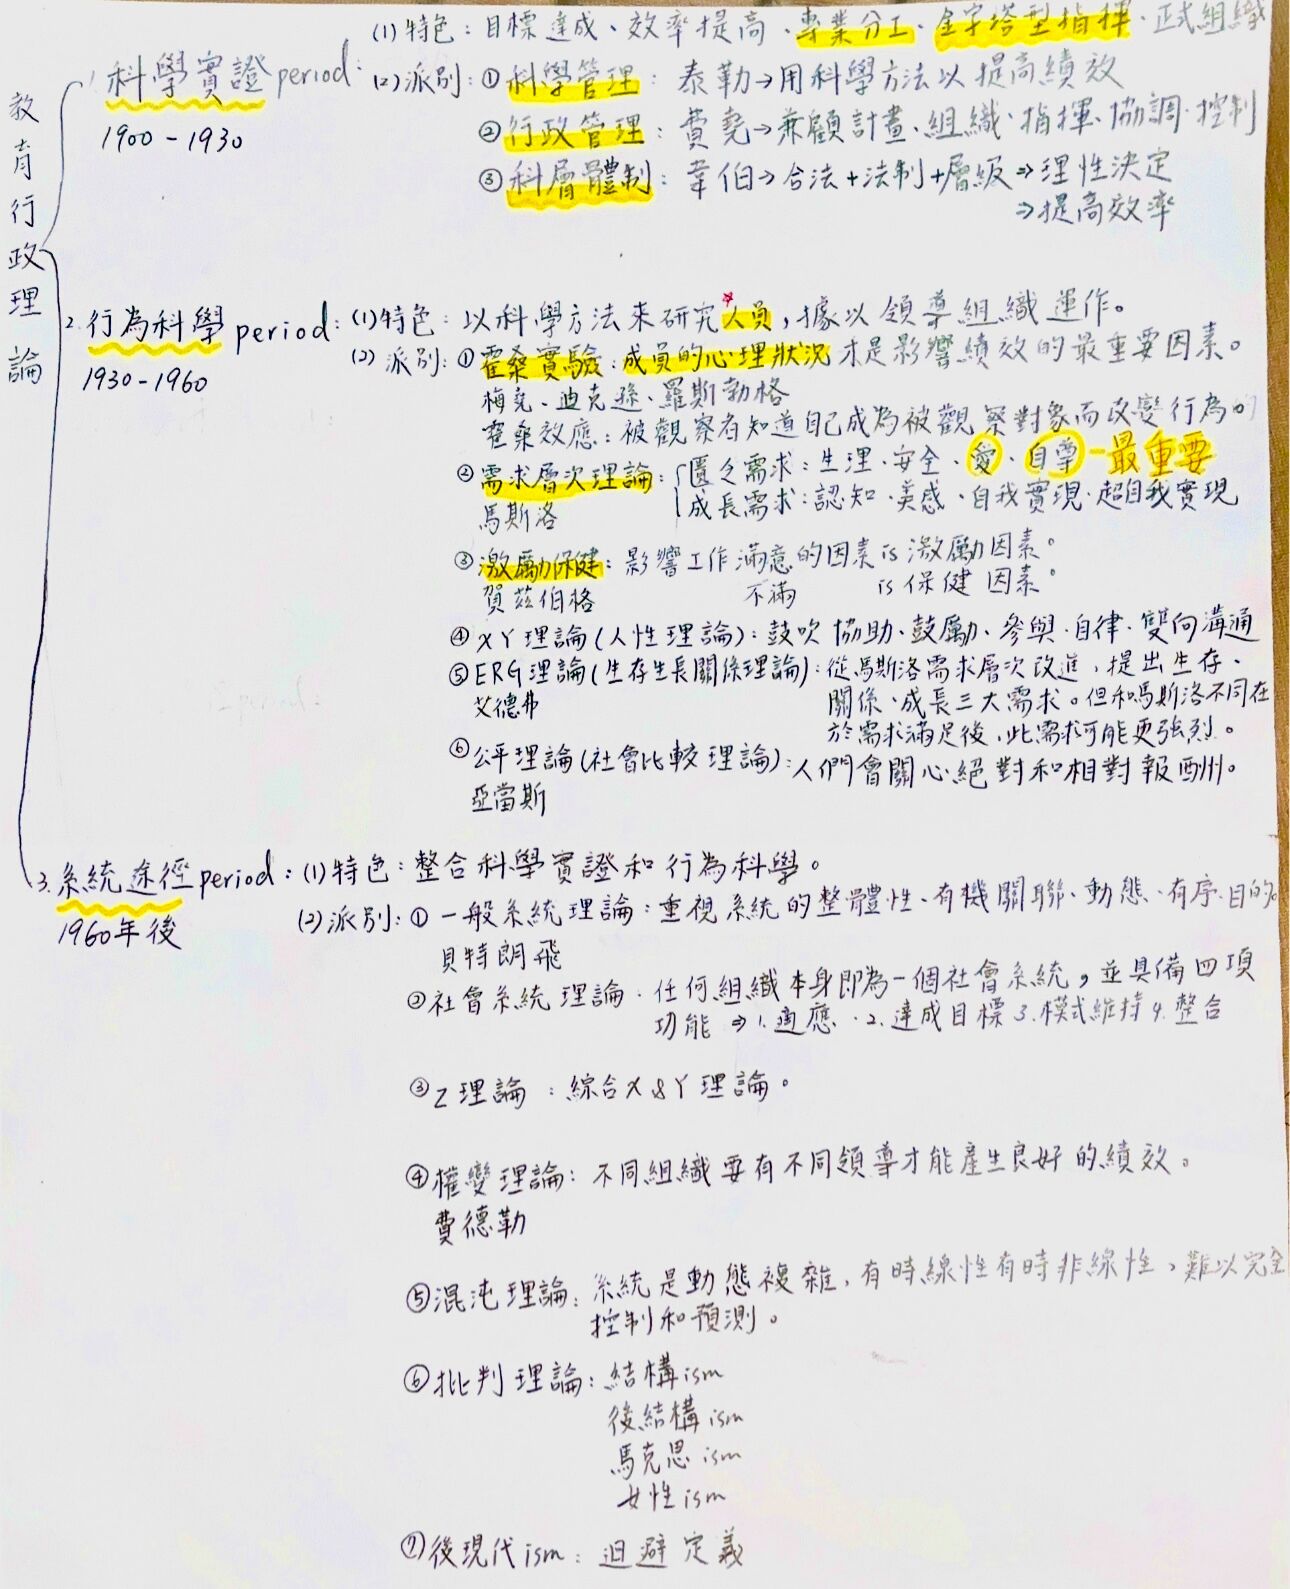 教育行政理論
1. 科學實證period:
1900-1930
(1)特色:目標達成、效率提高、專業分工、金字塔型指揮、正式組織
(2)派別:①科學管理:泰勒→用科學方法以提高績效
②行政管理:費堯→兼顧計畫、組織、指揮、協調、控制
③科層體制:韋伯→合法+法制+層級⇒理性決定
⇒提高效率
2.行為科學period:
1930-1960
(1)特色:以科學方法來研究人員,據以領導組織運作。
(2)派別:①霍桑實驗:成員的心理狀況才是影響績效的最重要因素。
梅堯、迪克遜、羅斯勃格
霍桑效應:被觀察者知道自己成為被觀察對象而改變行為的
②需求層次理論:匱乏需求:生理、安全、愛、自尊-最重要
馬斯洛 成長需求:認知、美感、自我實現、超自我實現
③激勵保健:影響工作滿意的因素is激勵因素。
賀茲伯格 不滿 is保健因素。
④XY理論(人性理論):鼓吹協助、鼓勵、參與、自律、雙向溝通
⑤ERG理論(生存生長關係理論):從馬斯洛需求層次改進,提出生存、
艾德弗 關係、成長三大需求。但和馬斯洛不同在
於需求滿足後,此需求可能更強烈。
⑥公平理論(社會比較理論):人們會關心絕對和相對報酬。
亞當斯
3.系統途徑period:(1)特色:整合科學實證和行為科學。
1960年後
(2)派別:①一般系統理論:重視系統的整體性、有機關聯、動態、有序、目的。
貝特朗飛
②社會系統理論:任何組織本身即為一個社會系統,並具備四項
功能⇒1.適應.2.達成目標3.模式維持4.整合
③Z理論:綜合X&Y理論。
④權變理論:不同組織要有不同領導才能產生良好的績效。
費德勒
⑤混沌理論:系統是動態複雜,有時線性有時非線性,難以完全
控制和預測。
⑥批判理論:結構ism
後結構ism
馬克思ism
女性ism
⑦後現代ism:迴避定義